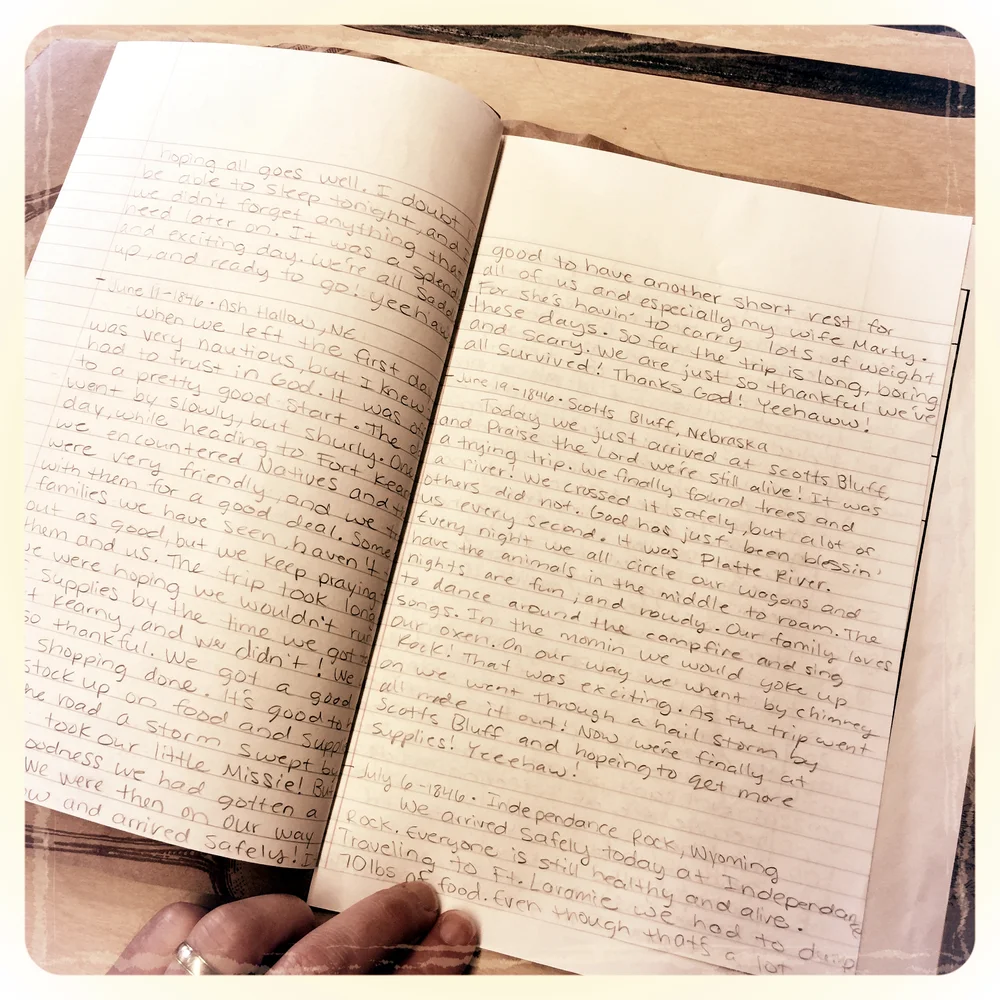 hoping all goes well. I doubt
be able to sleep tonight, and I
we didn't forget anything that
need later on. It was a splend
and exciting day. We're all Sadd
up, and ready to go! Yeehaw
- June 11-1846 • Ash Hallow, NE
When we left the first day
was very nautious, but I knew
had to trust in God. It was of
to a pretty good start. The d
went by slowly, but shurly. One
day, while heading to Fort Kear
we encountered Natives and th
were very friendly, and we t
with them for a good deal. Some
families we have seen haven't
out as good, but we keep praying
them and us. The trip took long
we were hoping we wouldn't run
supplies by the time we got t
t Kearny, and we didn't! We
so thankful. We got a good
shopping done. It's good to
stock up on food and suppl
he road a storm swept by
took our little Missie! But
oodness we had gotten a
We were then on our way
ow and arrived safely! I
good to have another short rest for
all of us and especially my wife Marty.
For she's havin' to carry lots of weight
these days. So far the trip is long, boring
and scary. We are just so thankful we've
all survived! Thanks God! Yeehaww!
- June 19-1846 • Scotts Bluff, Nebraska
Today we just arrived at Scotts Bluff,
and Praise the Lord we're still alive! It was
a trying trip. We finally found trees and
a river! We crossed it safely, but alot of
others did not. God has just been blessin'
us every second. It was Platte River.
Every night we all circle our wagons and
have the animals in the middle to roam. The
nights are fun, and rowdy. Our family loves
to dance around the campfire and sing
songs. In the mornin we would yoke up
our oxen. On our way we whent by chimney
Rock! That was exciting. As the trip went
on we went through a hail storm by
all made it out! Now we're finally at
Scotts Bluff and hoping to get more
supplies! Yeeehaw!
- July 6-1846 • Independance Rock, Wyoming
We arrived safely today at Independanc
Rock. Everyone is still healthy and alive.
Traveling to Ft. Laramie we had to dump
70lbs of food. Even though that's a lot